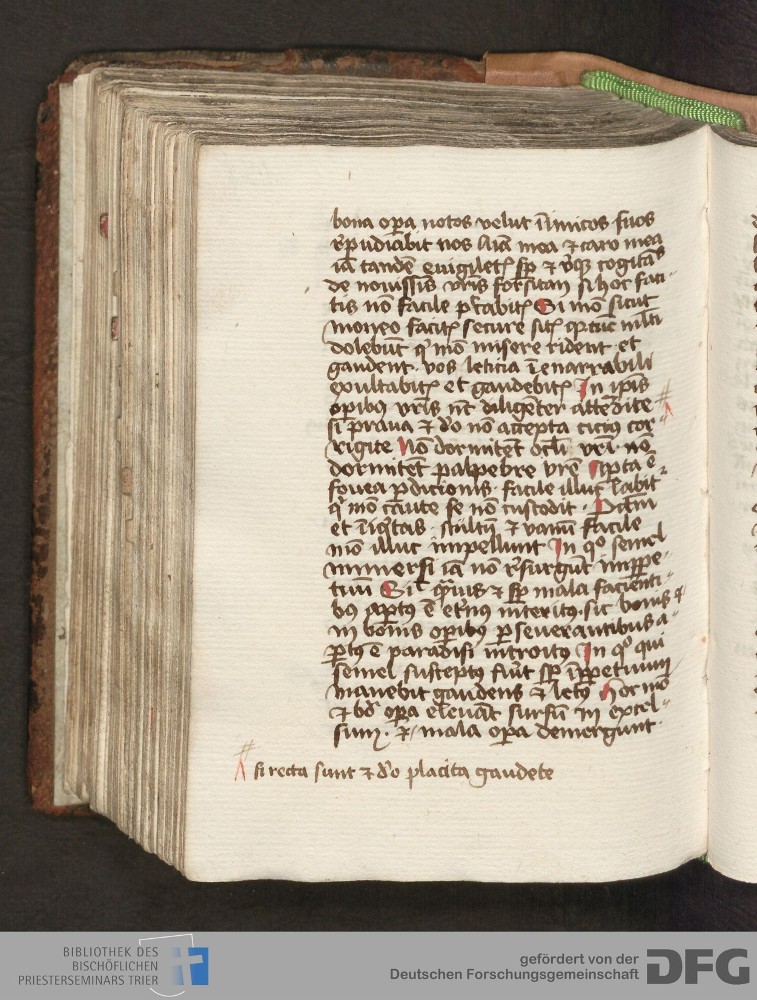 bona opa notos velut inimicos suos
rpudiabit nos Aīa mea et caro mea
iā tandē euigilet sp et vq cogitās
de nouissīs vrīs forsitan si hoc faci-
tis nō facile ptabit Si mō sicut
moneo facit secure sit q tūc mlti
dolebūt q mō misere rident et
gaudent. vos leticia ienarrabili
exultabit et gaudebit In ipīs
opibus vrīs nc diligēter attēdite
si praua et deo nō accepta cicius cor-
rigite Nō dormitēt oclī vri. nō
dormitēt palpebre vrē Apta ē
fouea pdicionis. facile illuc labit
q mō caute se nō custodit. Pctm
et iiqitas stultū et vanū facile
mō illuc impellunt In q semel
immersi iā nō rsurgūt impppe-
tuū Sic quis et sp mala facienti-
bus aptus ē etnus interitus. sic bonis et
in bonis opibus pseuerantibus a-
ptus ē paradisi introitus In q qui
semel susceptus fuīt sp ippetuum
manebit gaudens et letus Hec mō
et bo opa eleuāt sursū in excel-
sum. et mala opa demergunt.
si recta sunt et deo placita gaudete
BIBLIOTHEK DES
BISCHÖFLICHEN
PRIESTERSEMINARS TRIER
gefördert von der
Deutschen Forschungsgemeinschaft
DFG